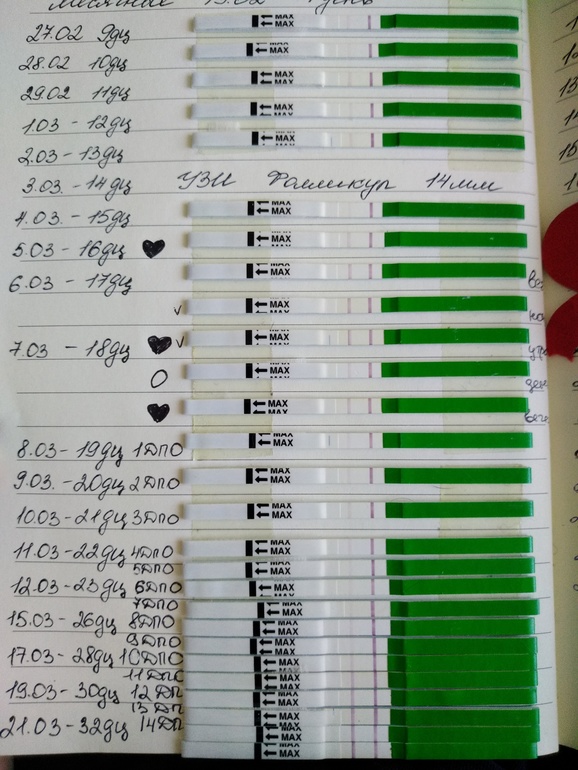 месячные 19.02 1 день
27.02 9дц
MAX
28.02 10дц
MAX
29.02 11дц
MAX
1.03 - 12дц
MAX
2.03 - 13дц
MAX
3.03. - 14дц УЗИ Фолликул 14мм
4.03 - 15дц
MAX
5.03 - 16дц
MAX
6.03 - 17дц
MAX
MAX
7.03 - 18дц
MAX
MAX
MAX
8.03 - 19дц 1ДПО
MAX
9.03. - 20дц 2ДПО
MAX
10.03 - 21дц 3ДПО
MAX
11.03 - 22дц 4ДПО
MAX
5ДПО
MAX
12.03 - 23дц 6ДПО
MAX
7ДПО
MAX
15.03 - 26дц 8ДПО
MAX
9ДПО
MAX
17.03 - 28дц 10ДПО
MAX
11ДПО
MAX
19.03 - 30дц 12ДП
MAX
13ДП
MAX
21.03 - 32дц 14ДП
MAX
MAX